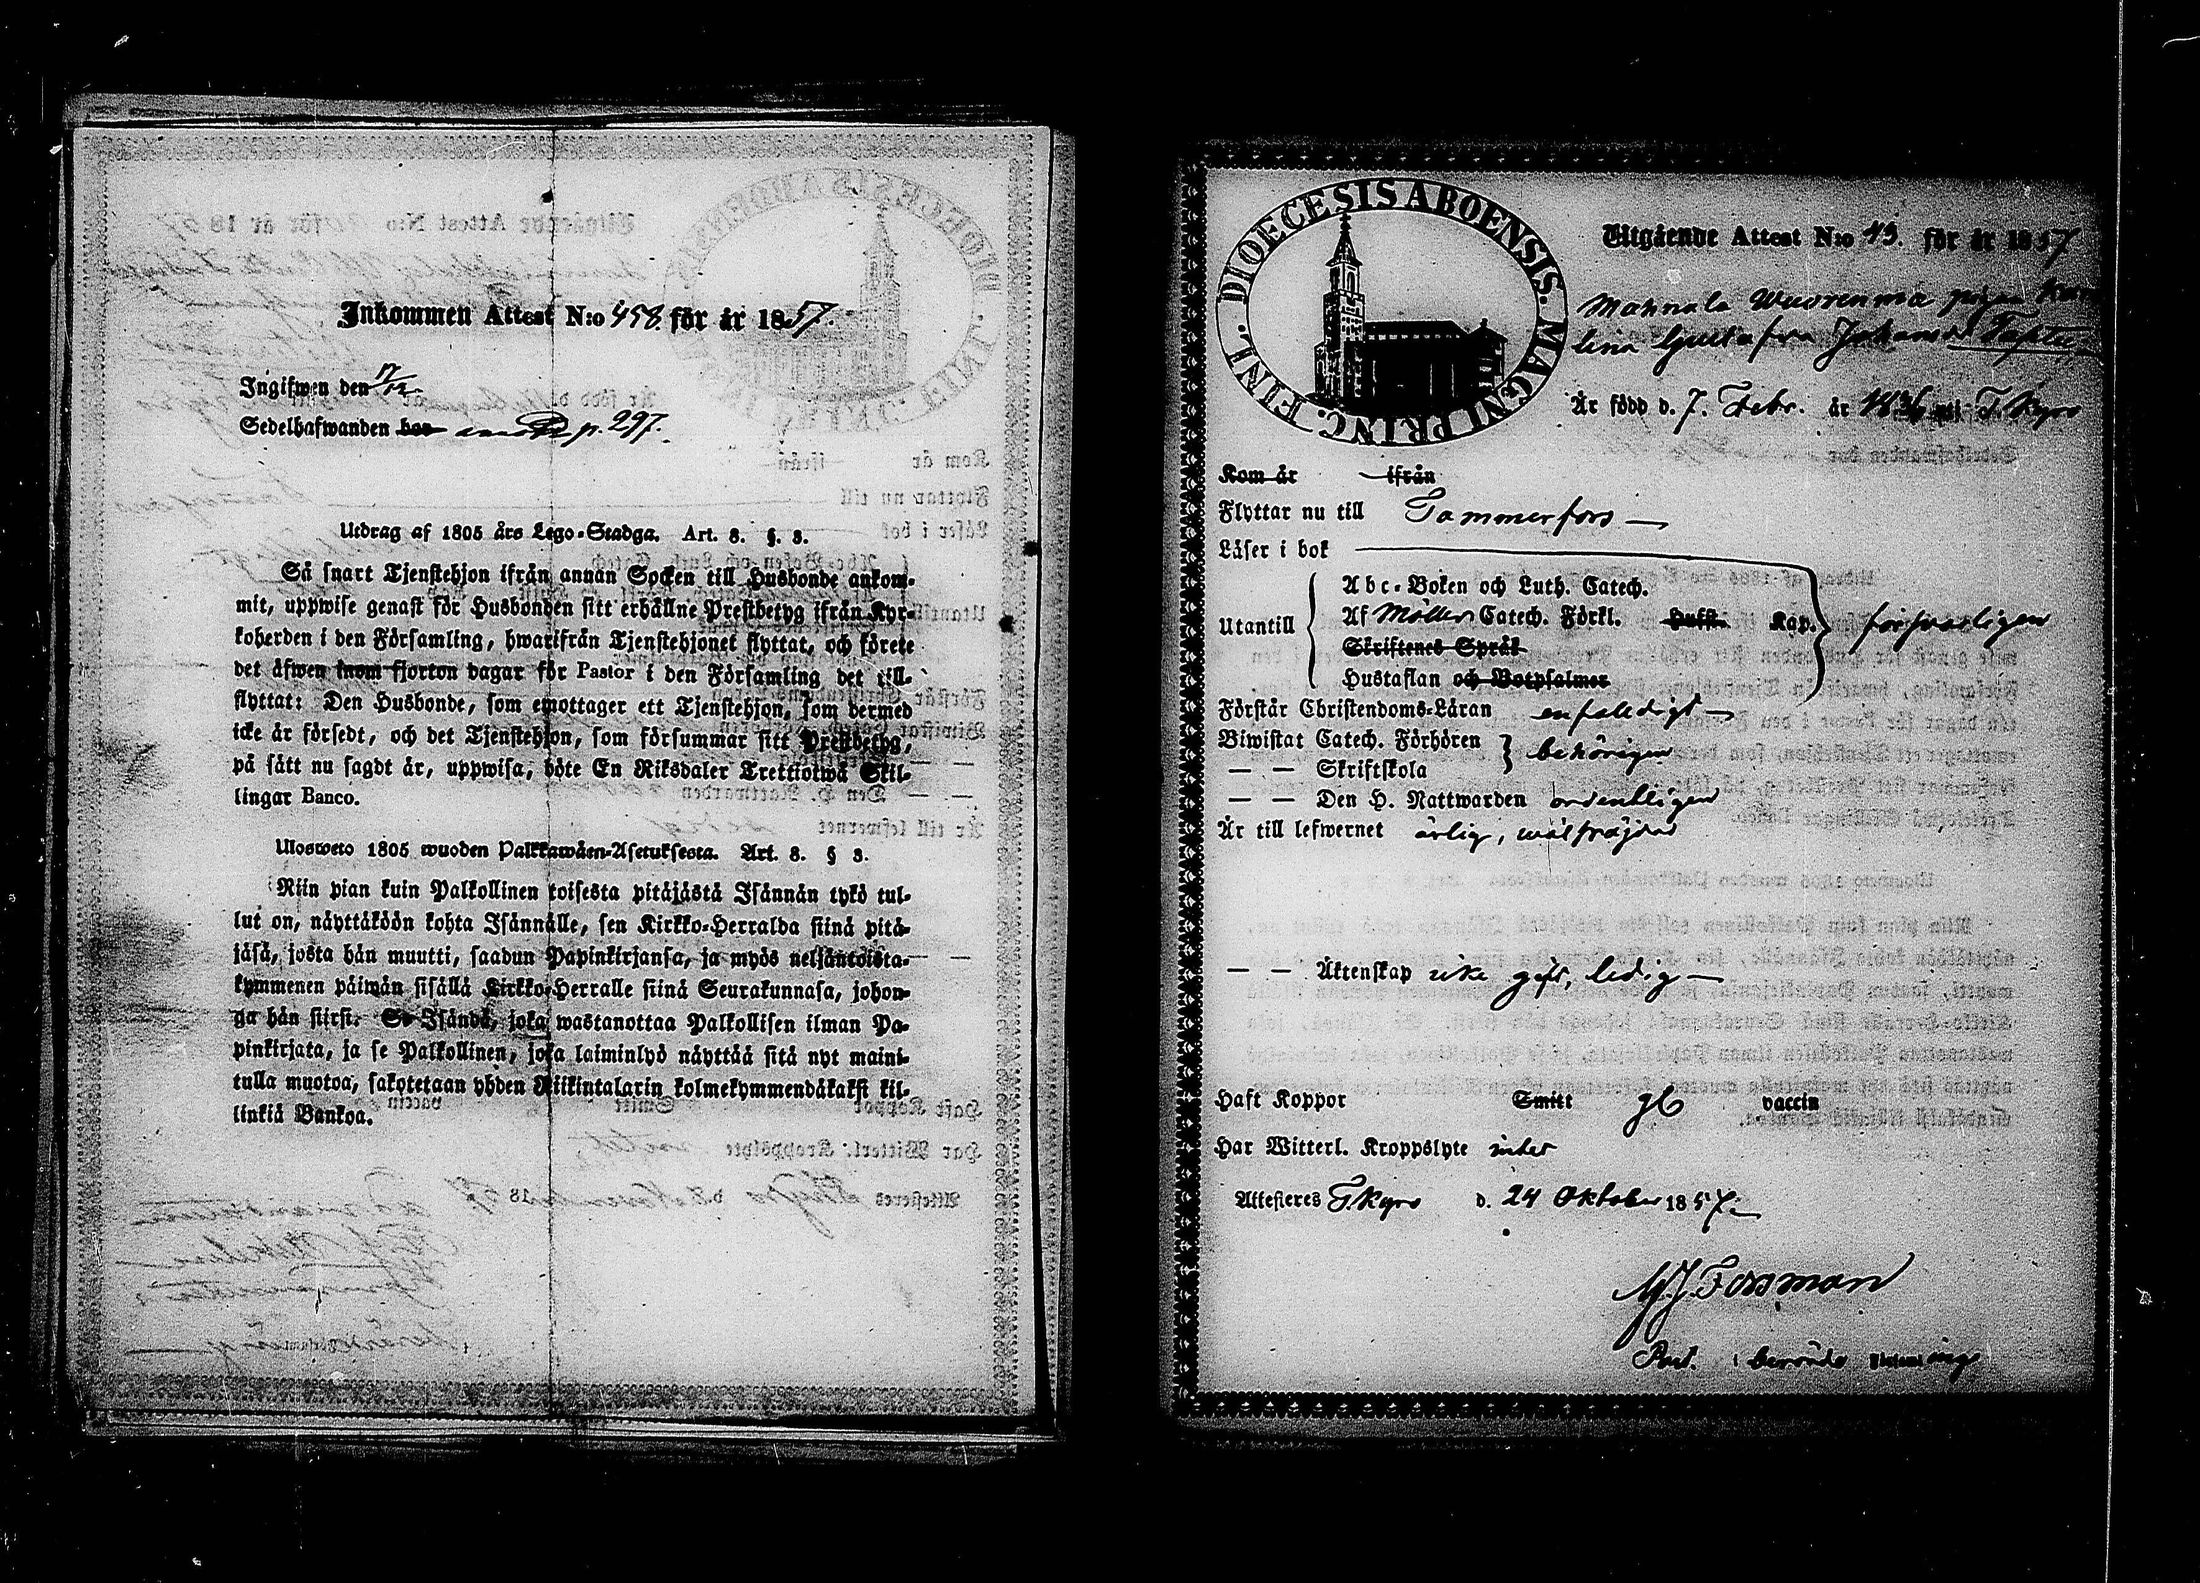 Inkommen Attest N:o 458. för år 1857.
Ingifwen den 17/12
Sedelhafwanden bor p. 297.
Utdrag af 1805 års Lego-Stadga. Art. 8. §. 3.
Så snart Tjenstehjon ifrån annan Socken till Husbonde ankom-
mit, uppwise genast för Husbonden sitt erhållne Prestbetyg ifrån Kyr-
koherden i den Församling, hwarifrån Tjenstehjonet flyttat, och förete
det äfwen inom fjorton dagar för Pastor i den Församling det till-
flyttat: Den Husbonde, som emottager ett Tjenstehjon, som dermed
icke är försedt, och det Tjenstehjon, som försummar sitt Prestbetyg,
på sätt nu sagdt är, uppwisa, böte En Riksdaler Trettiotwå Skil-
lingar Banco.
Ulosweto 1805 wuoden Palkkawäen-Asetuksesta. Art. 8. § 3.
Niin pian kuin Palkollinen toisesta pitäjästä Isännän tykö tul-
lut on, näyttäköön kohta Isännälle, sen Kirkko-Herralda siinä pitä-
jäsä, josta hän muutti, saadun Papinkirjansa, ja myös neljäntoista-
kymmenen päiwän sisällä Kirkko-Herralle siinä Seurakunnasa, johon-
ga hän siirsi. Se Isändä, joka wastanottaa Palkollisen ilman Pa-
pinkirjata, ja se Palkollinen, joka laiminlyö näyttää sitä nyt maini-
tulla muotoa, sakotetaan yhden Riikintalarin kolmekymmendäkaksi kil-
linkiä Bankoa.
DIOECESIS ABOENSIS. MAGNI PRINC. FINL.
Utgående Attest N:o 43. för år 1857
Mahnala Wuorenmaa pigan Karo
lina Gustafva Johansd
Är född d. 7. Febr. år 1836 uti T. Kyro
Kom år ifrån
Flyttar nu till Tammerfors
Läser i bok
Utantill
Abc-Boken och Luth. Catech.
Af Möllers Catech. Förkl. Kap.
Skriftenes Språk
Hustaflan och Botpsalmer
försvarligen
Förstår Christendoms-Läran enfaldigt
Biwistat Catech. Förhören
— — Skriftskola
behörigen
— — Den H. Nattwarden ordentligen
Är till lefwernet ärlig, wälfräjdad
— — Äktenskap icke gift, ledig
Haft Koppor Smitt vaccin
Har Witterl. Kroppslyte intet
Attesteres T. Kyro d. 24 Oktober 1857.
Forsman
Past.